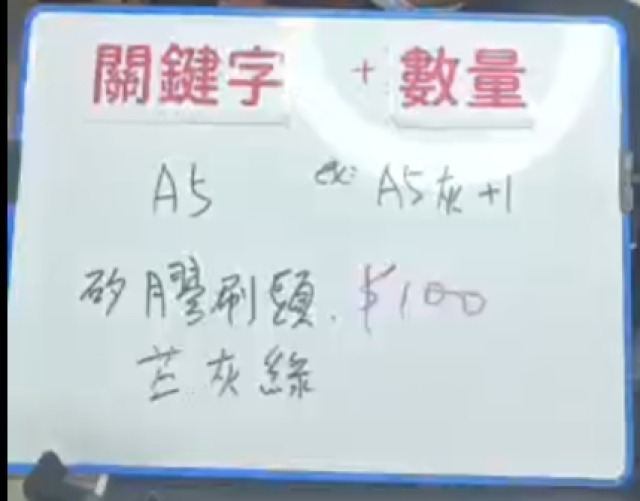 關鍵字 + 數量
A5 ex: A5灰+1
矽膠刷頭. $100
灰綠